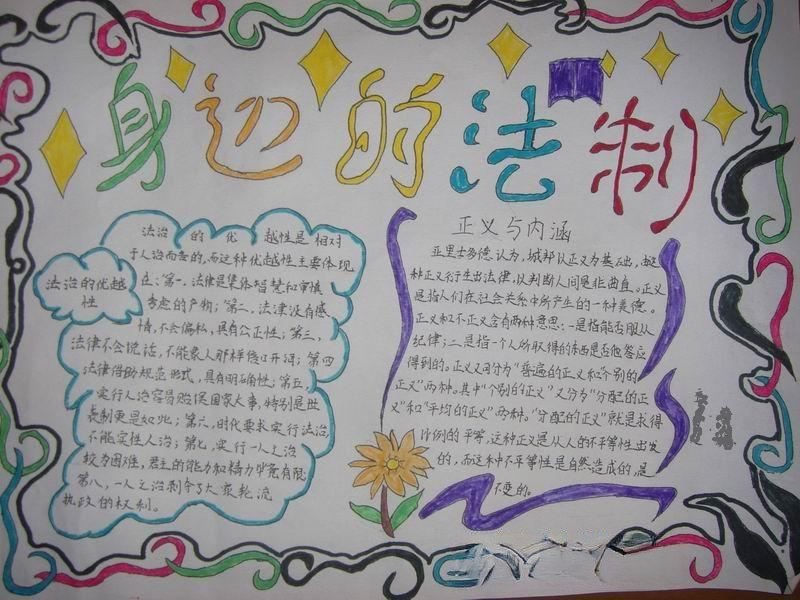 身边的法制
法治的优越
性
法治 的 优 越性是 相对
于人治而言的,而这种优越性主要体现
在:第一,法律是集体智慧和审慎
考虑的产物;第二,法律没有感
情,不会偏私,具有公正性;第三,
法律不会说话,不能象人那样信口开河;第四
法律借助规范形式,具有明确性;第五,
实行人治容易贻误国家大事,特别是世
袭制更是如此;第六,时代要求实行法治,
不能实性人治;第七,实行一人之治
较为困难,君主的能力和精力毕竟有限
第八,一人之治剥夺了大家轮流
执政的权利。
正义与内涵
亚里士多德认为,城邦以正义为基础,由这
种正义衍生出法律,以判断人间是非曲直。正义
是指人们在社会关系中所产生的一种美德。
正义和不正义含有两种意思:一是指能否服从
纪律;二是指一个人所取得的东西是否他答应
得到的。正义又同分为"普遍的正义和个别的
正义"两种。其中"个别的正义"又分为"分配的正
义"和"平均的正义"两种。"分配的正义"就是求得
比例的平等,这种正义是从人的不平等性出发
的,而这种不平等性是自然造成的,是
不变的。